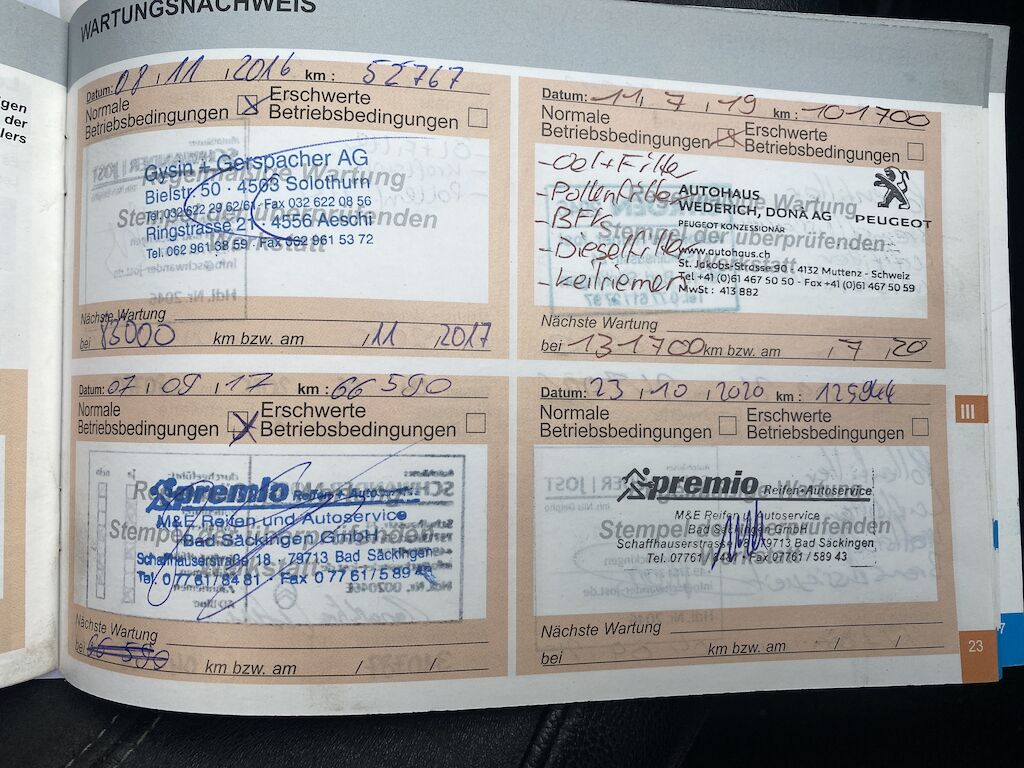 WARTUNGSNACHWEIS
igen
der
lers
Datum: 08, 11, 2016 km: 52767
Normale Betriebsbedingungen
Erschwerte Betriebsbedingungen
Gysin + Gerspacher AG
Bielstr. 50 · 4503 Solothurn
Tel. 032 622 29 62/61 · Fax 032 622 08 56
Ringstrasse 21 · 4556 Aeschi
Tel. 062 961 68 59 · Fax 062 961 53 72
Stempel der überprüfenden
Nächste Wartung
bei 83000 km bzw. am ,11 , 2017
Datum: 07, 09, 17 km: 66 590
Normale Betriebsbedingungen
Erschwerte Betriebsbedingungen
premio Reifen + Autoservice
M&E Reifen und Autoservice
Bad Säckingen GmbH
79713 Bad Säckingen
Tel. 0 77 61 / 84 81 · Fax 0 77 61 / 5 89 43
Nächste Wartung
bei 66 590 km bzw. am / /
Datum: 11, 7, 19 km: 101700
Normale Betriebsbedingungen
Erschwerte Betriebsbedingungen
- Oel + Filter
- Pollenfilter
- BFK
- Dieselfilter
- Keilriemen
AUTOHAUS
WEDERICH, DONÀ AG
PEUGEOT KONZESSIONÄR
www.autohaus.ch
St. Jakobs-Strasse 90 · 4132 Muttenz - Schweiz
Tel +41 (0)61 467 50 50 - Fax +41 (0)61 467 50 59
MwSt : 413 882
PEUGEOT
Stempel der überprüfenden
Werkstatt
Nächste Wartung
bei 131700 km bzw. am ,7 , 20
Datum: 23, 10, 2020 km: 125944
Normale Betriebsbedingungen
Erschwerte Betriebsbedingungen
premio Reifen-Autoservice
M&E Reifen u. Autoservice
Bad Säckingen GmbH
Schaffhauserstrasse 79713 Bad Säckingen
Tel. 07761/ Fax 07761 / 589 43
Nächste Wartung
bei km bzw. am / /
III
23